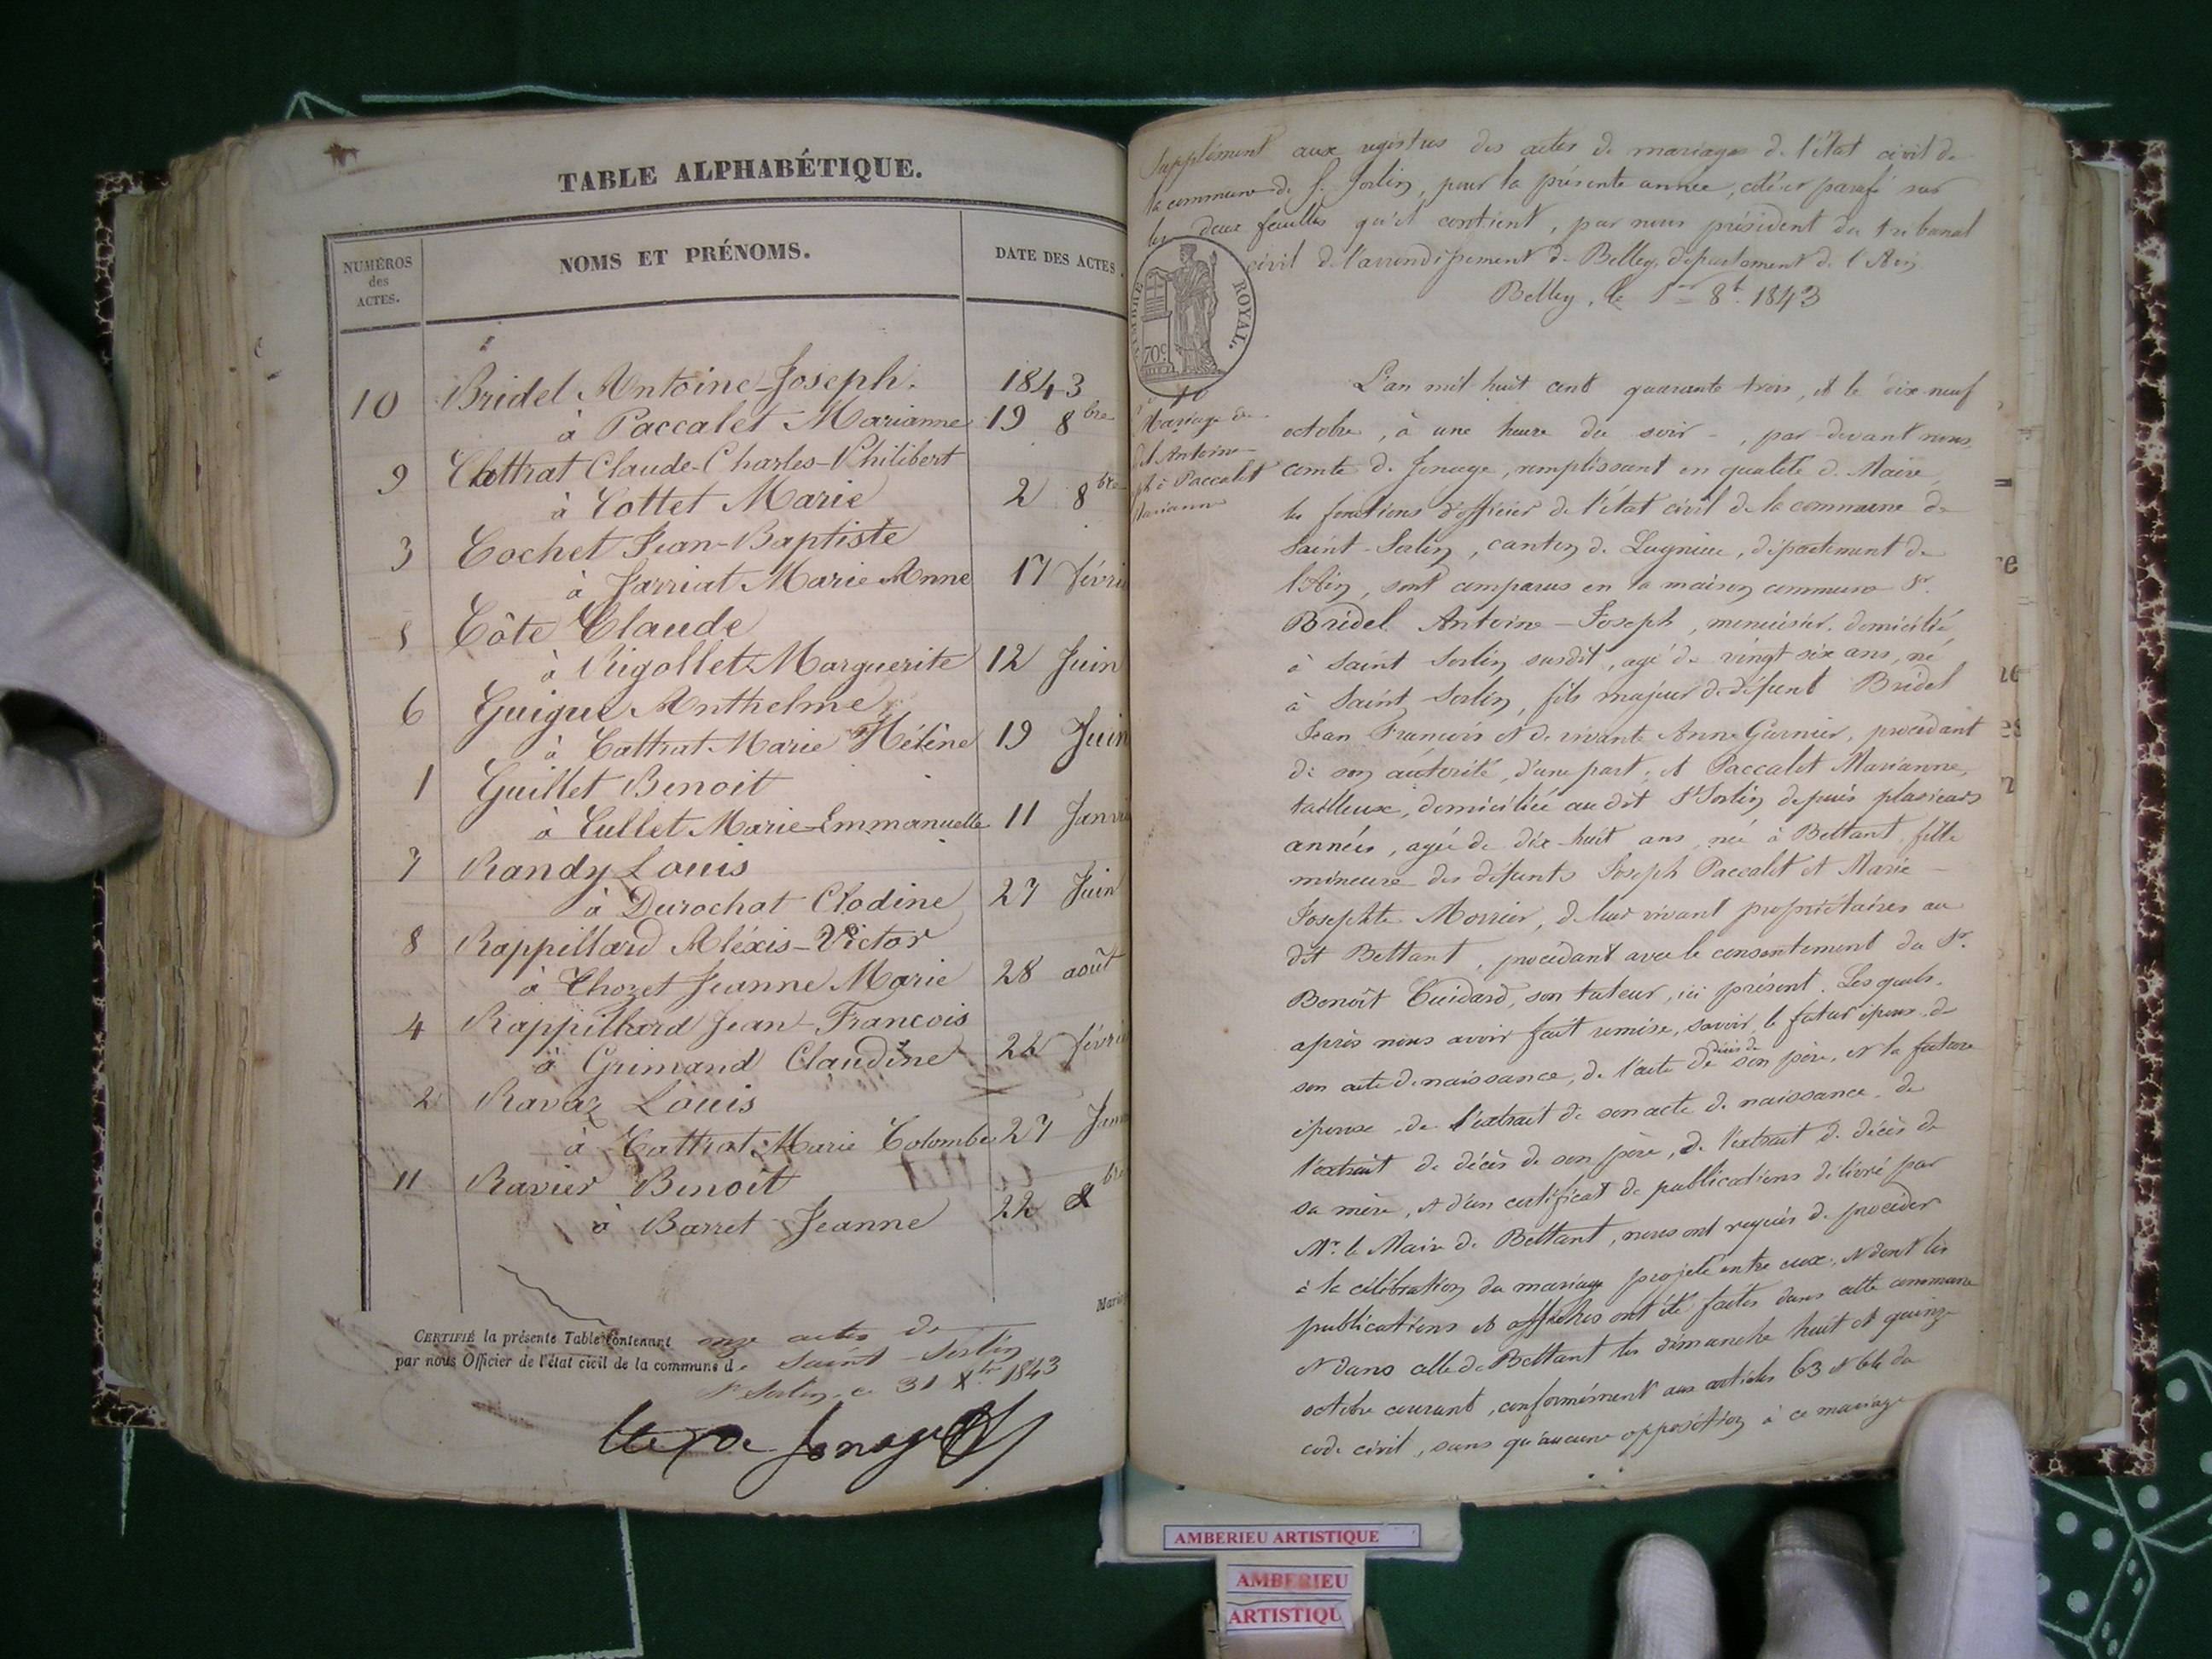 TABLE ALPHABÉTIQUE.
NUMÉROS des ACTES.
NOMS ET PRÉNOMS.
DATE DES ACTES.
10 Bridel Antoine-Joseph. 1843
à Paccalet Marianne 19 8bre
9 Cattrat Claude-Charles-Philibert
à Cottet Marie 2 8bre
3 Cochet Jean-Baptiste
à Jarriat Marie Anne 17 févri
5 Côte Claude
à Rigollet Marguerite 12 Juin
6 Guigue Anthelme
à Cattrat Marie Hélène 19 Juin
1 Guillet Benoit
à Cullet Marie-Emmanuelle 11 Janvi
7 Randy Louis
à Durochat Clodine 27 Juin
8 Rappillard Aléxis-Victor
à Chozet Jeanne Marie 28 août
4 Rappillard Jean-François
à Grimand Claudine 22 févri
2 Ravaz Louis
à Cattrat Marie Colombe 27 Jan
11 Ravier Benoît
à Barret Jeanne 22 bre
CERTIFIÉ la présente Table contenant onze actes de
par nous Officier de l'état civil de la commune de Saint-Sorlin
St Sorlin, ce 31 Xbre 1843
Cte de Jonage
Supplément aux registres des actes de mariages de l'état civil de
la commune de S. Sorlin, pour la présente année, coté et parafé sur
les deux feuilles qu'il contient, par nous président du tribunal
civil de l'arrondissement de Belley, département de l'Ain
Belley, le 8bre 1843
TIMBRE ROYAL.
70c
10
Mariage de
del Antoine
ph à Paccalet
Marianne
L'an mil huit cent quarante trois, et le dix-neuf
octobre, à une heure du soir, par-devant nous
comte de Jonage, remplissant en qualité de Maire
les fonctions d'officier de l'état civil de la commune de
Saint-Sorlin, canton de Lagnieu, département de
l'Ain, sont comparus en la maison commune Sr.
Bridel Antoine-Joseph, menuisier, domicilié
à Saint Sorlin susdit, agé de vingt six ans, né
à Saint Sorlin, fils majeur de défunt Bridel
Jean François et de vivante Anne Garnier, procédant
de son autorité, d'une part; et Paccalet Marianne,
tailleuse, domiciliée au dit St Sorlin depuis plusieurs
années, agée de dix-huit ans, née à Bettant, fille
mineure des défunts Joseph Paccalet et Marie
Josephte Morrier, de leur vivant propriétaires au
dit Bettant, procédant avec le consentement du Sr.
Benoît Cuidard, son tuteur, ici présent. Lesquels,
après nous avoir fait remise, savoir, le futur époux, de
son acte de naissance, de l'acte de décès de son père, et la future
épouse, de l'extrait de son acte de naissance, de
l'extrait de décès de son père, de l'extrait de décès de
sa mère, et d'un certificat de publications délivré par
Mr. le Maire de Bettant, nous ont requis de procéder
à la célébration du mariage projeté entre eux, et dont les
publications et affiches ont été faites dans cette commune
et dans celle de Bettant les dimanche huit et quinze
octobre courant, conformément aux articles 63 et 64 du
code civil, sans qu'aucune opposition à ce mariage
AMBERIEU ARTISTIQUE
AMBERIEU
ARTISTIQU